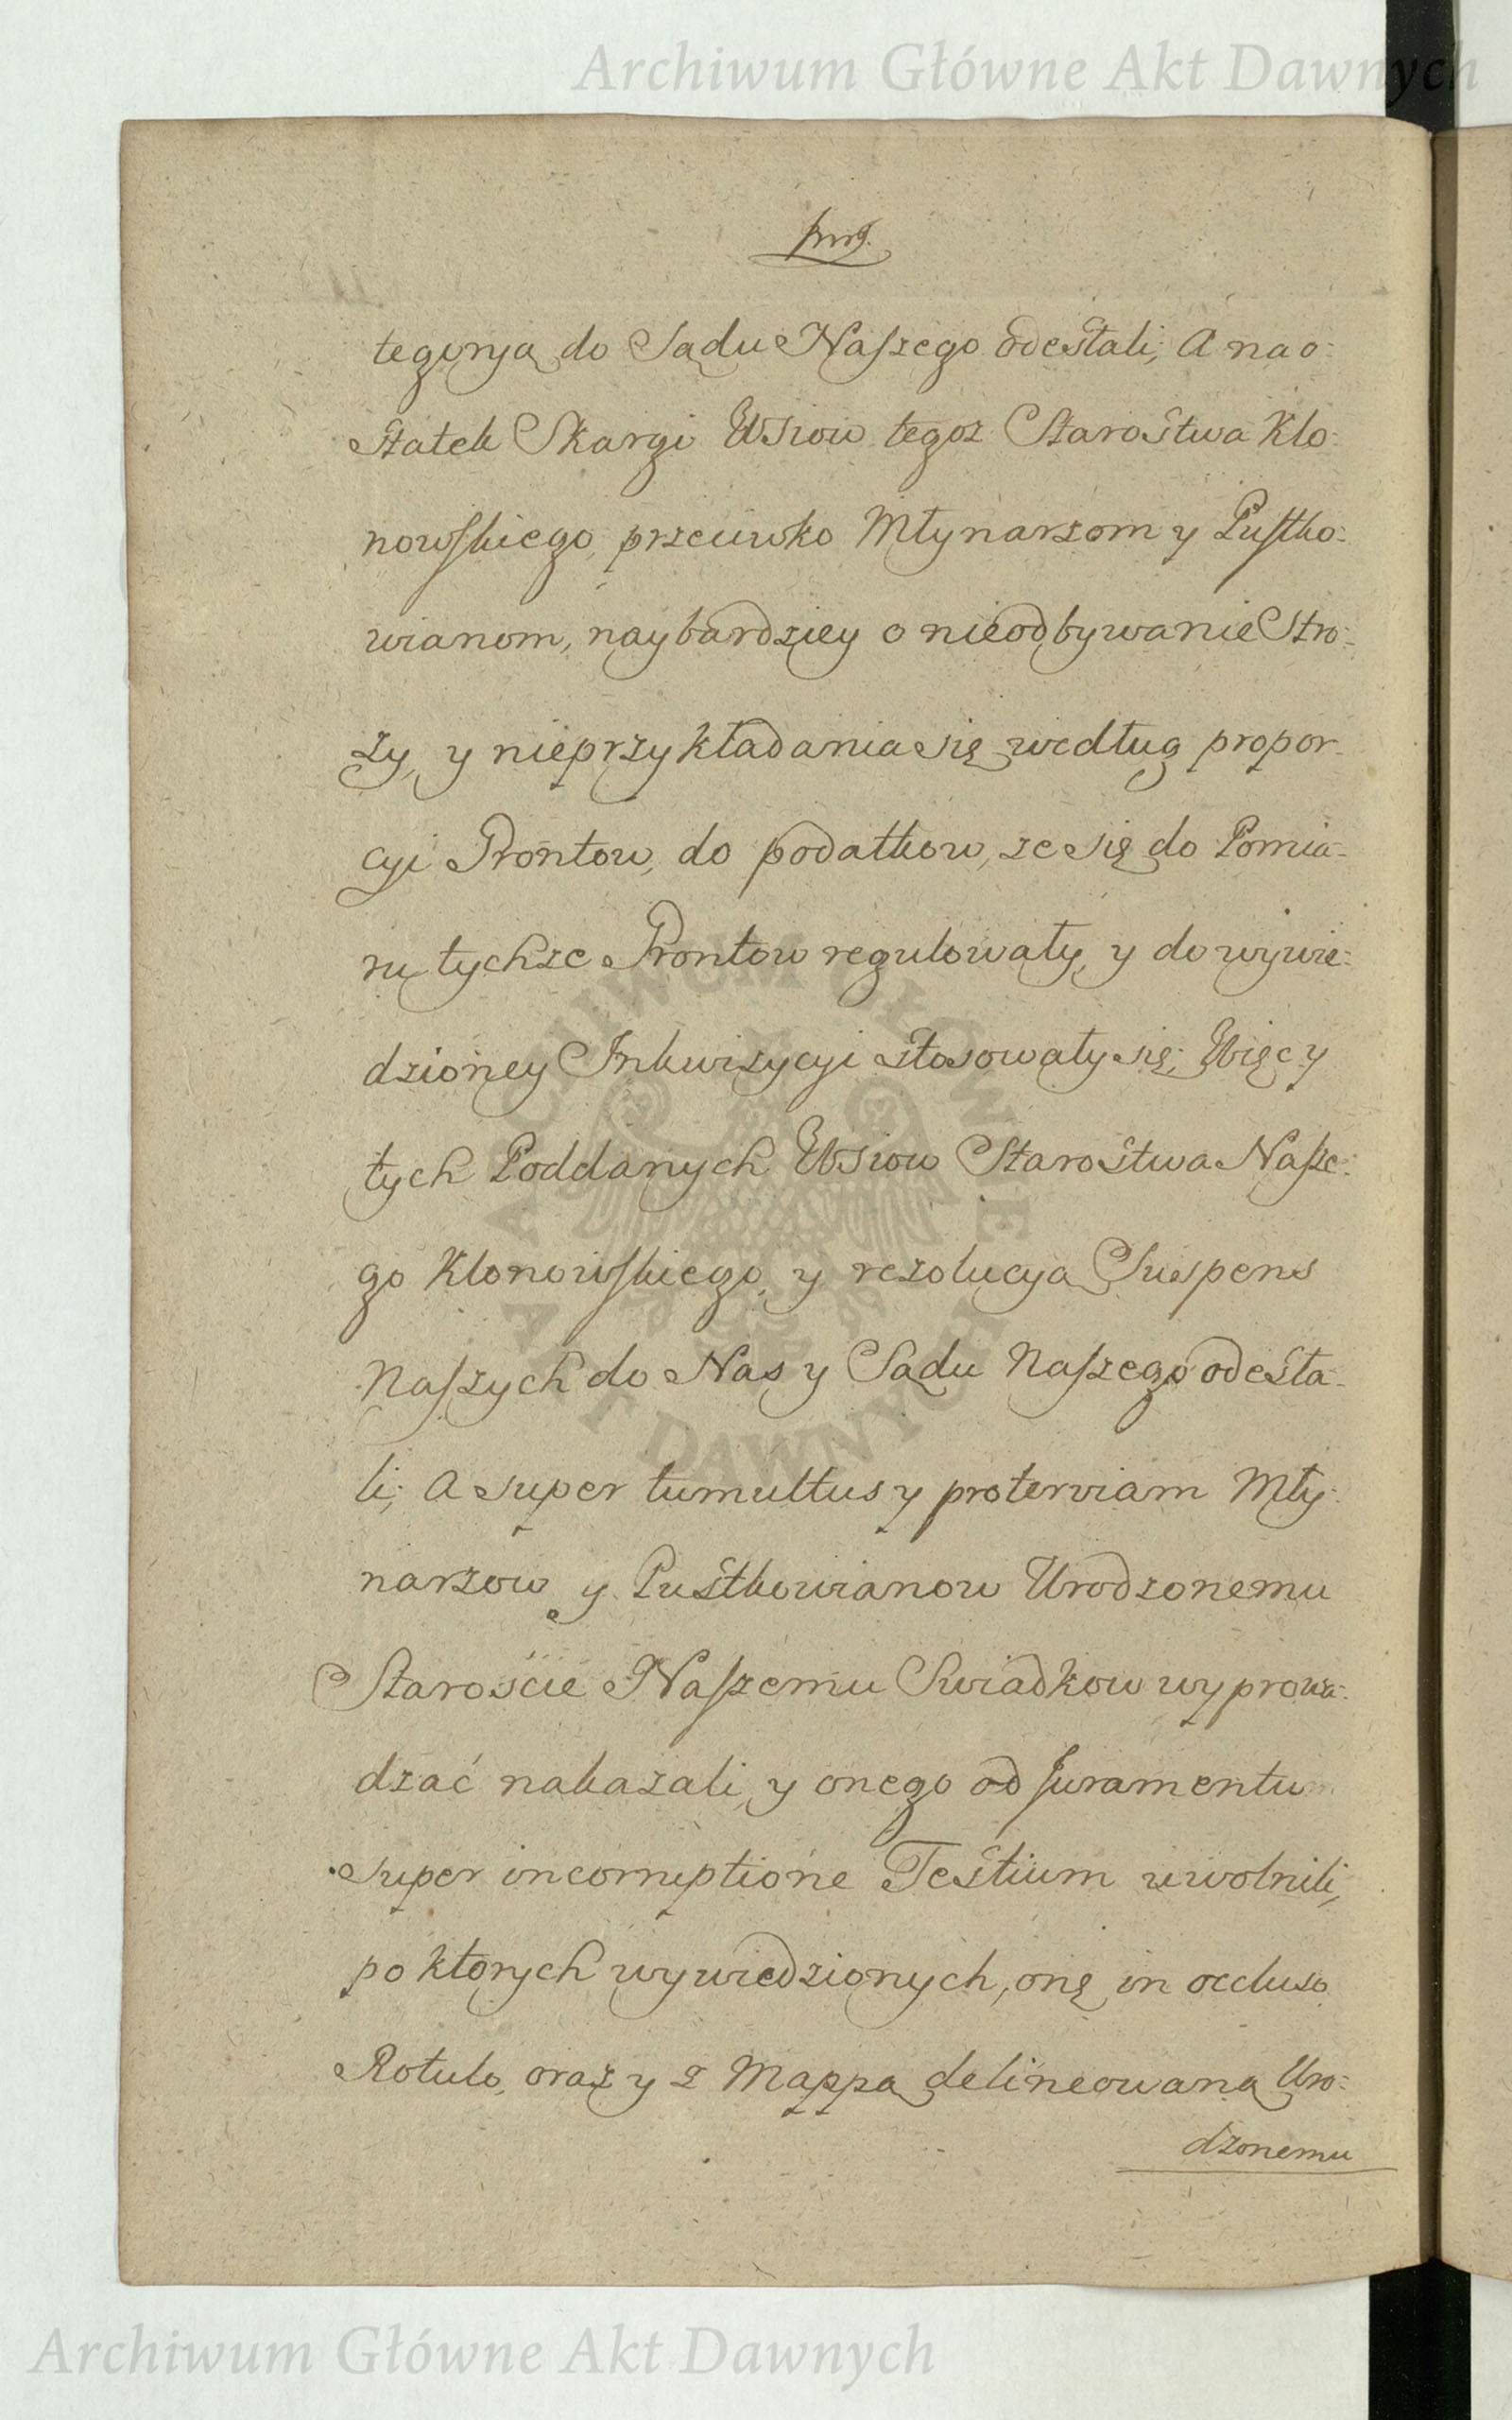 Archiwum Główne Akt Dawnych
tegorya do Sądu Naszego odesłali; A na o:
statek Skargi Wsiow tegoz Starostwa Klo:
nowskiego, przeciwko Młynarzom y Pustko:
wianom, naybardziey o nieodbywanie Stro:
ży, y nieprzykładania się według propor:
cyi Grontow, do podatkow, ze się do Pomia:
ru tychze Grontow regulowały, y do wywie:
dzioney Inkwizycyi stosowały się; Więc y
tych Poddanych Wsiow Starostwa Nasze:
go Klonowskiego, y rezolucya Suspens
Naszych do Nas y Sądu Naszego odesła:
li; A super tumultus y proterviam Mły:
narzow y Pustkowianow Urodzonemu
Staroście Naszemu Swiadkow wyprowa:
dzać nakazali, y onego od Juramentu
super incorruptione Testium uwolnili,
po ktorych wywiedzionych, onę in occluso
Rotulo, oraz y z Mappą delineowaną Uro:
dzonemu
ARCHIWUM GŁÓWNE
AKT DAWNYCH
Archiwum Główne Akt Dawnych